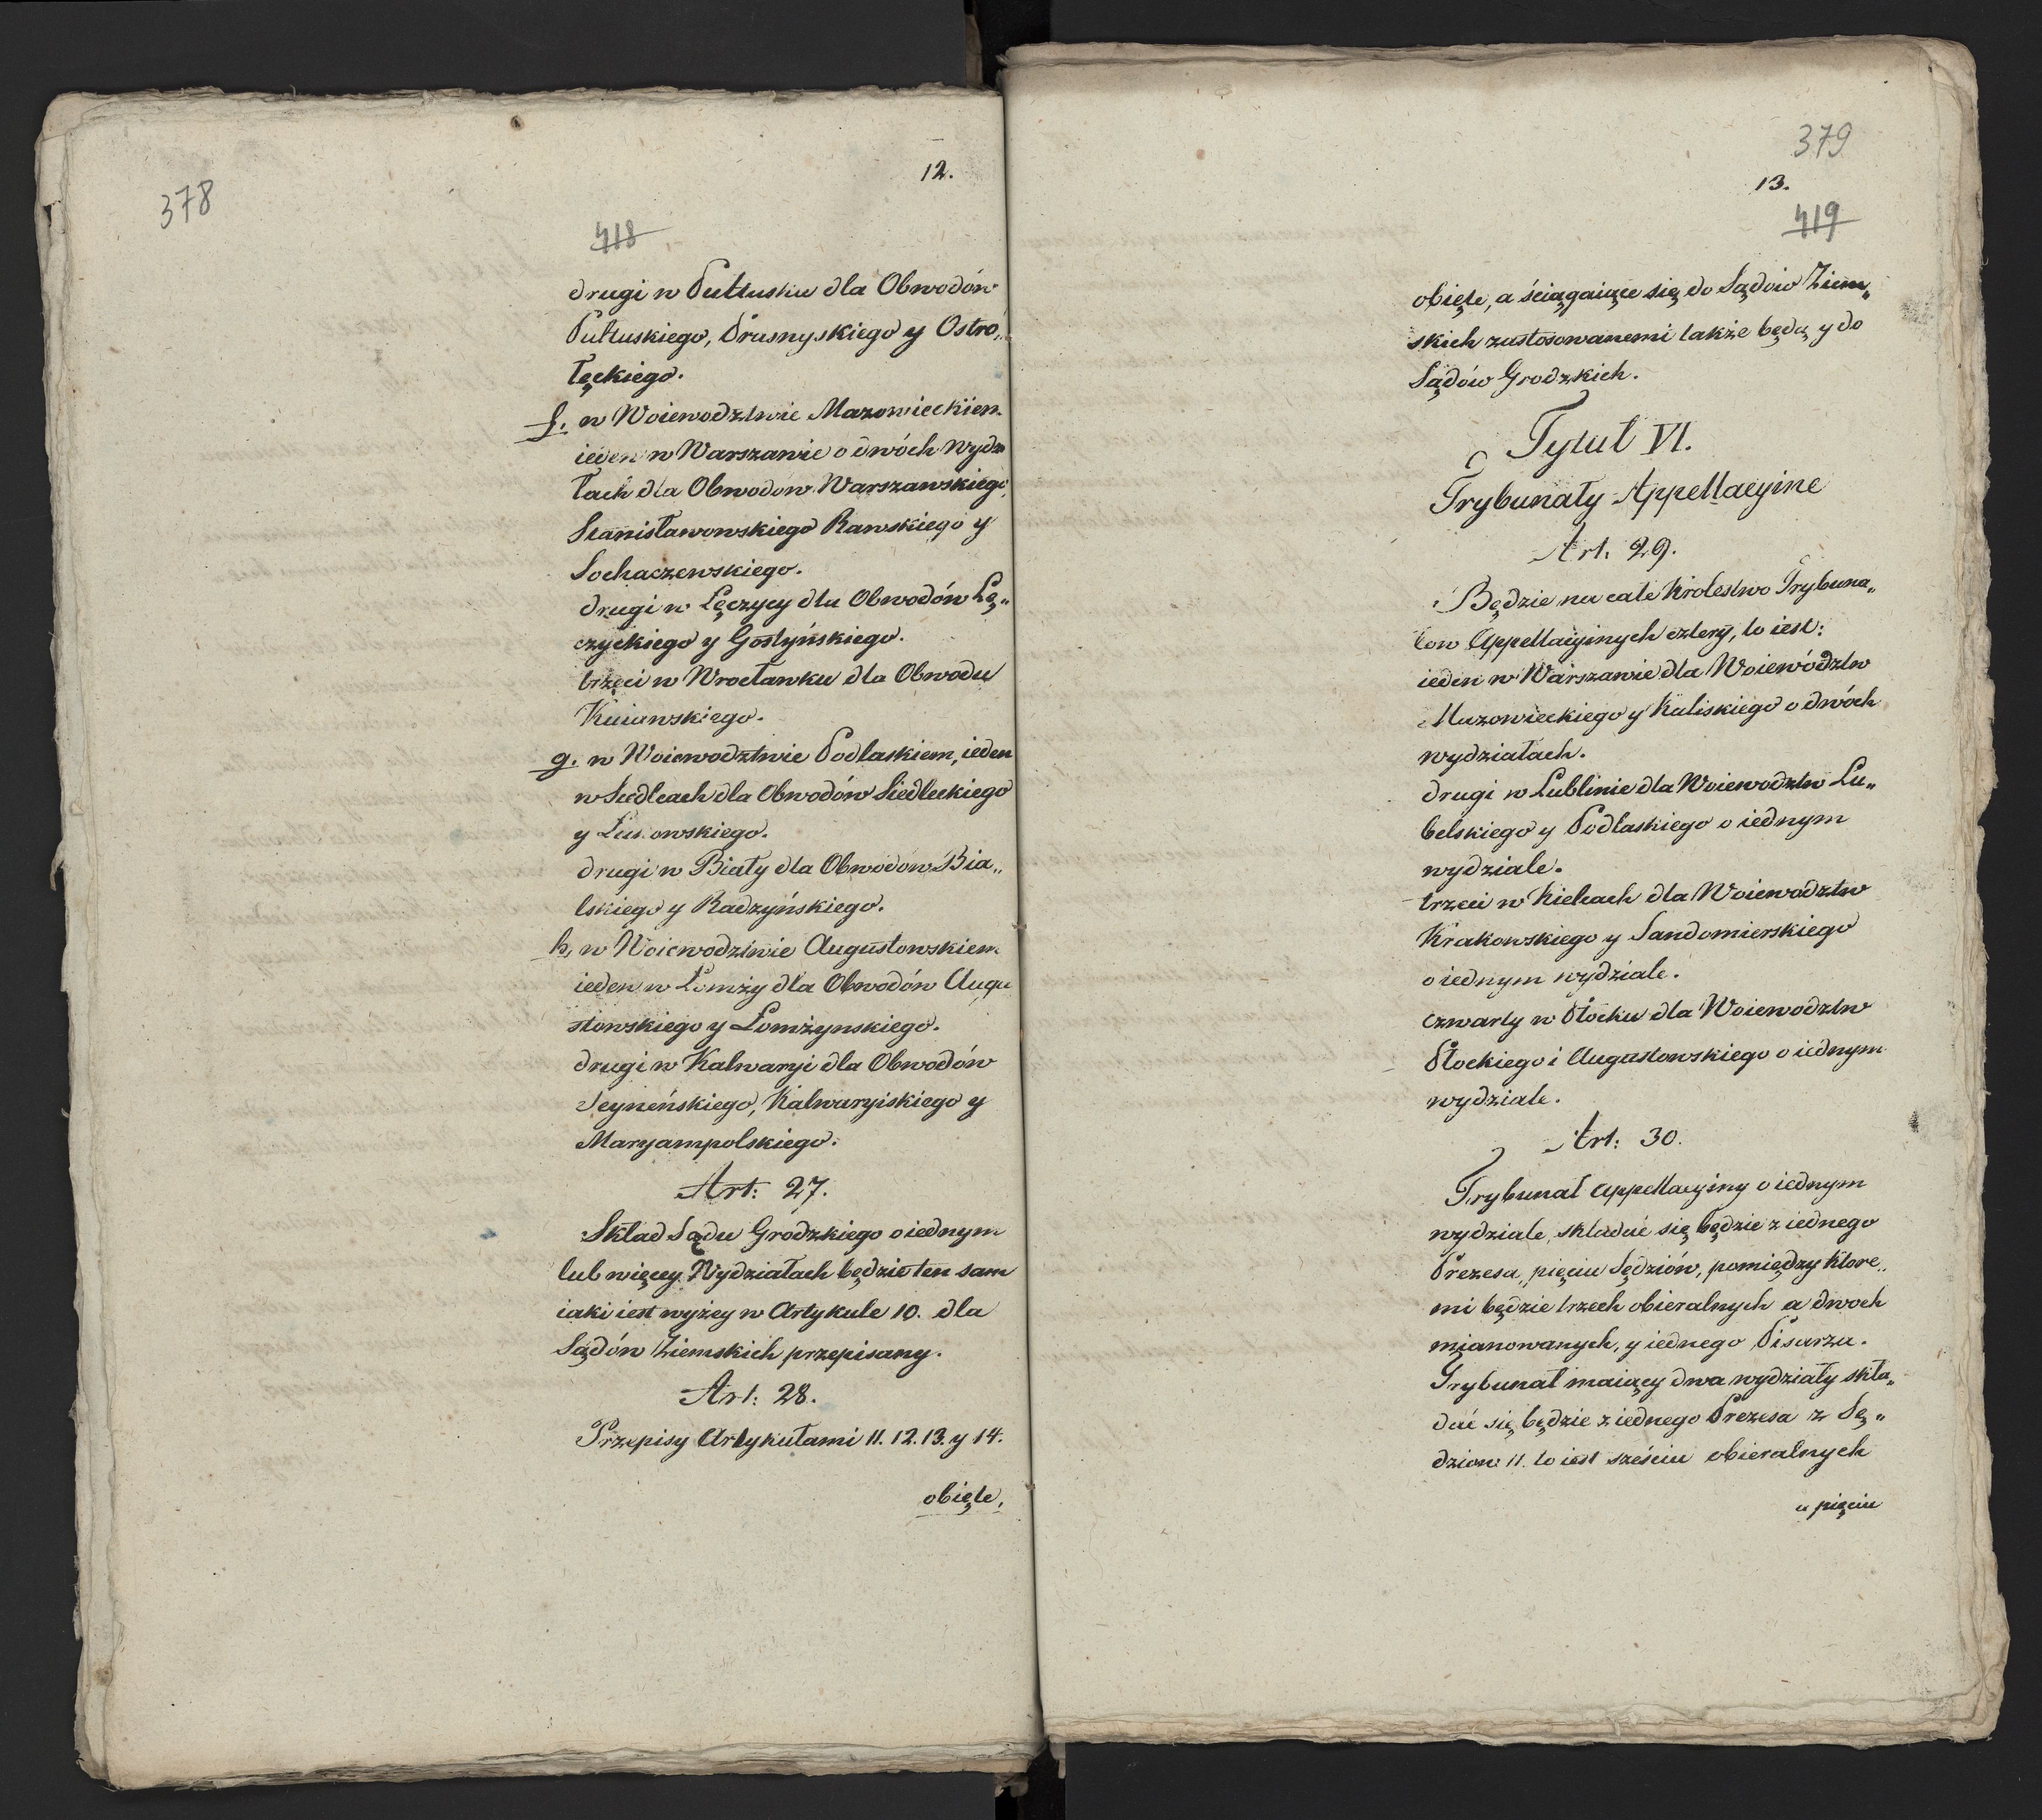 12.
378
418
drugi w Pułtusku dla Obwodów
Pułtuskiego, Prasnyskiego y Ostro„
łęckiego.
f. w Woiewodztwie Mazowieckiem
ieden w Warszawie o dwóch wydzia
łach dla Obwodow Warszawskiego,
Stanisławowskiego Rawskiego y
Sochaczewskiego.
drugi w Łęczycy dla Obwodów Łę„
czyckiego y Gostyńskiego.
trzeci w Wrocławku dla Obwodu
Kuiawskiego.
g. w Woiewodztwie Podlaskiem, ieden
w Siedlcach dla Obwodów Siedleckiego
y Łukowskiego.
drugi w Biały dla Obwodow Bia„
lskiego y Radzyńskiego.
h, w Woiewodztwie Augustowskiem
ieden w Łomży dla Obwodów Augu
stowskiego y Łomżynskiego.
drugi w Kalwaryi dla Obwodów
Seyneńskiego, Kalwaryiskiego y
Maryampolskiego.
Art: 27.
Skład Sądu Grodzkiego o iednym
lub więcey Wydziałach będzie ten sam
iaki iest wyżey w Artykule 10. dla
Sądów Ziemskich przepisany.
Art: 28.
Przepisy Artykułami 11. 12. 13. y 14.
obięte,
379
13.
419
obięte, a ściągaiące się do Sądów Ziem„
skich zastosowanemi także będą y do
Sądów Grodzkich.
Tytuł VI.
Trybunały Appellacyine
Art. 29.
Będzie na całe Krolestwo Trybuna„
łow Appellacyinych cztery, to iest:
ieden w Warszawie dla Woiewództw
Mazowieckiego y Kaliskiego o dwóch
wydziałach.
drugi w Lublinie dla Woiewodztw Lu„
belskiego y Podlaskiego o iednym
wydziale.
trzeci w Kielcach dla Woiewodztw
Krakowskiego y Sandomierskiego
o iednym wydziale.
czwarty w Płocku dla Woiewodztw
Płockiego i Augustowskiego o iednym
wydziale.
Art: 30.
Trybunał Appellacyiny o iednym
wydziale, składać się będzie z iednego
Prezesa, pięciu Sędziów, pomiędzy ktore„
mi będzie trzech obieralnych a dwoch
mianowanych, y iednego Pisarza.
Trybunał maiący dwa wydziały skła„
dać się będzie z iednego Prezesa z Sę„
dziow 11. to iest sześciu obieralnych
a pięciu